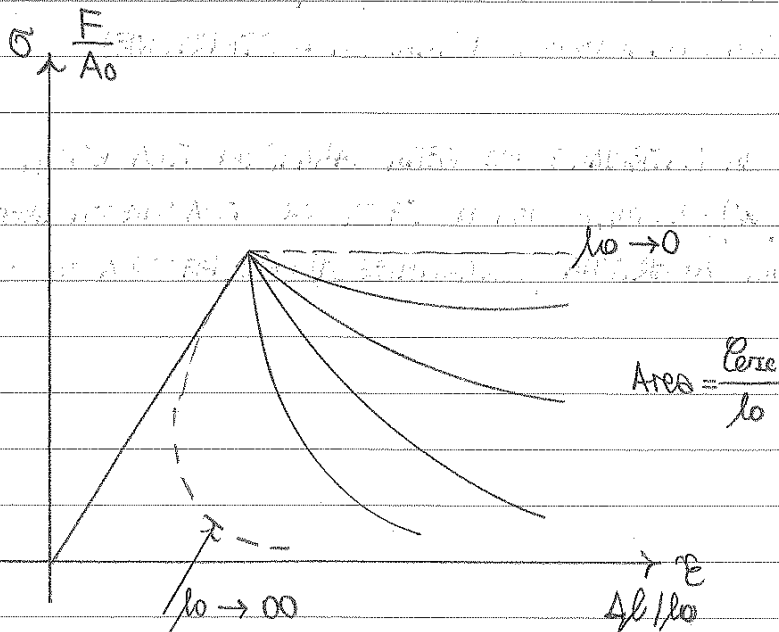 σ F/A0
l0 → 0
Area = /l0
l0 → ∞
ε
Δl/l0